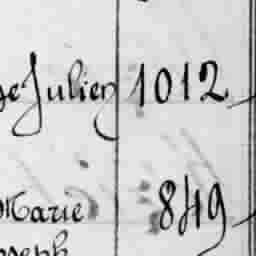 Julien 1012
Marie 849
Joseph